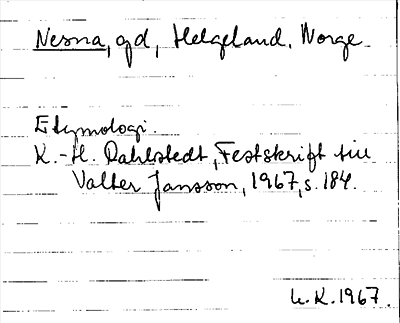 Nesna, gd, Helgeland, Norge
Etymologi.
K.-H. Dahlstedt, Festskrift till
Valter Jansson, 1967, s. 184.
L.K. 1967.